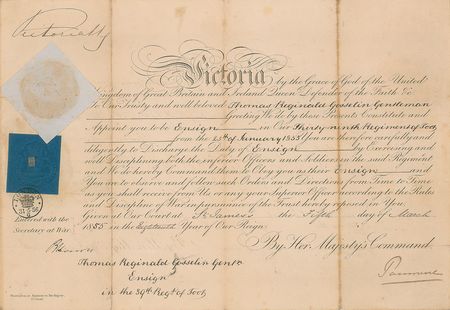 Victoria R
Victoria by the Grace of God, of the United
Kingdom of Great Britain and Ireland Queen Defender of the Faith &c
To Our Trusty and well beloved Thomas Reginald Gosselin Gentleman
Greeting We do by these Presents Constitute and
Appoint you to be Ensign in Our Thirty ninth Regiment of Foot
from the 15th of January 1855 You are therefore carefully and
diligently to Discharge the Duty of Ensign by Exercising and
well Disciplining both the inferior Officers and Soldiers in the said Regiment
and We do hereby Command them to Obey you as their Ensign and
You are to observe and follow such Orders and Directions from Time to Time
as you shall receive from Us or any your Superior Officer according to the Rules
and Discipline of War in pursuance of the Trust hereby reposed in You.
Given at Our Court at St James's the Fifth day of March
1855 in the Eighteenth Year of Our Reign.
Entered with the
Secretary at War
By Her Majesty's Command
Panmure
Thomas Reginald Gosselin Gent.
Ensign
in the 39th Regt of Foot